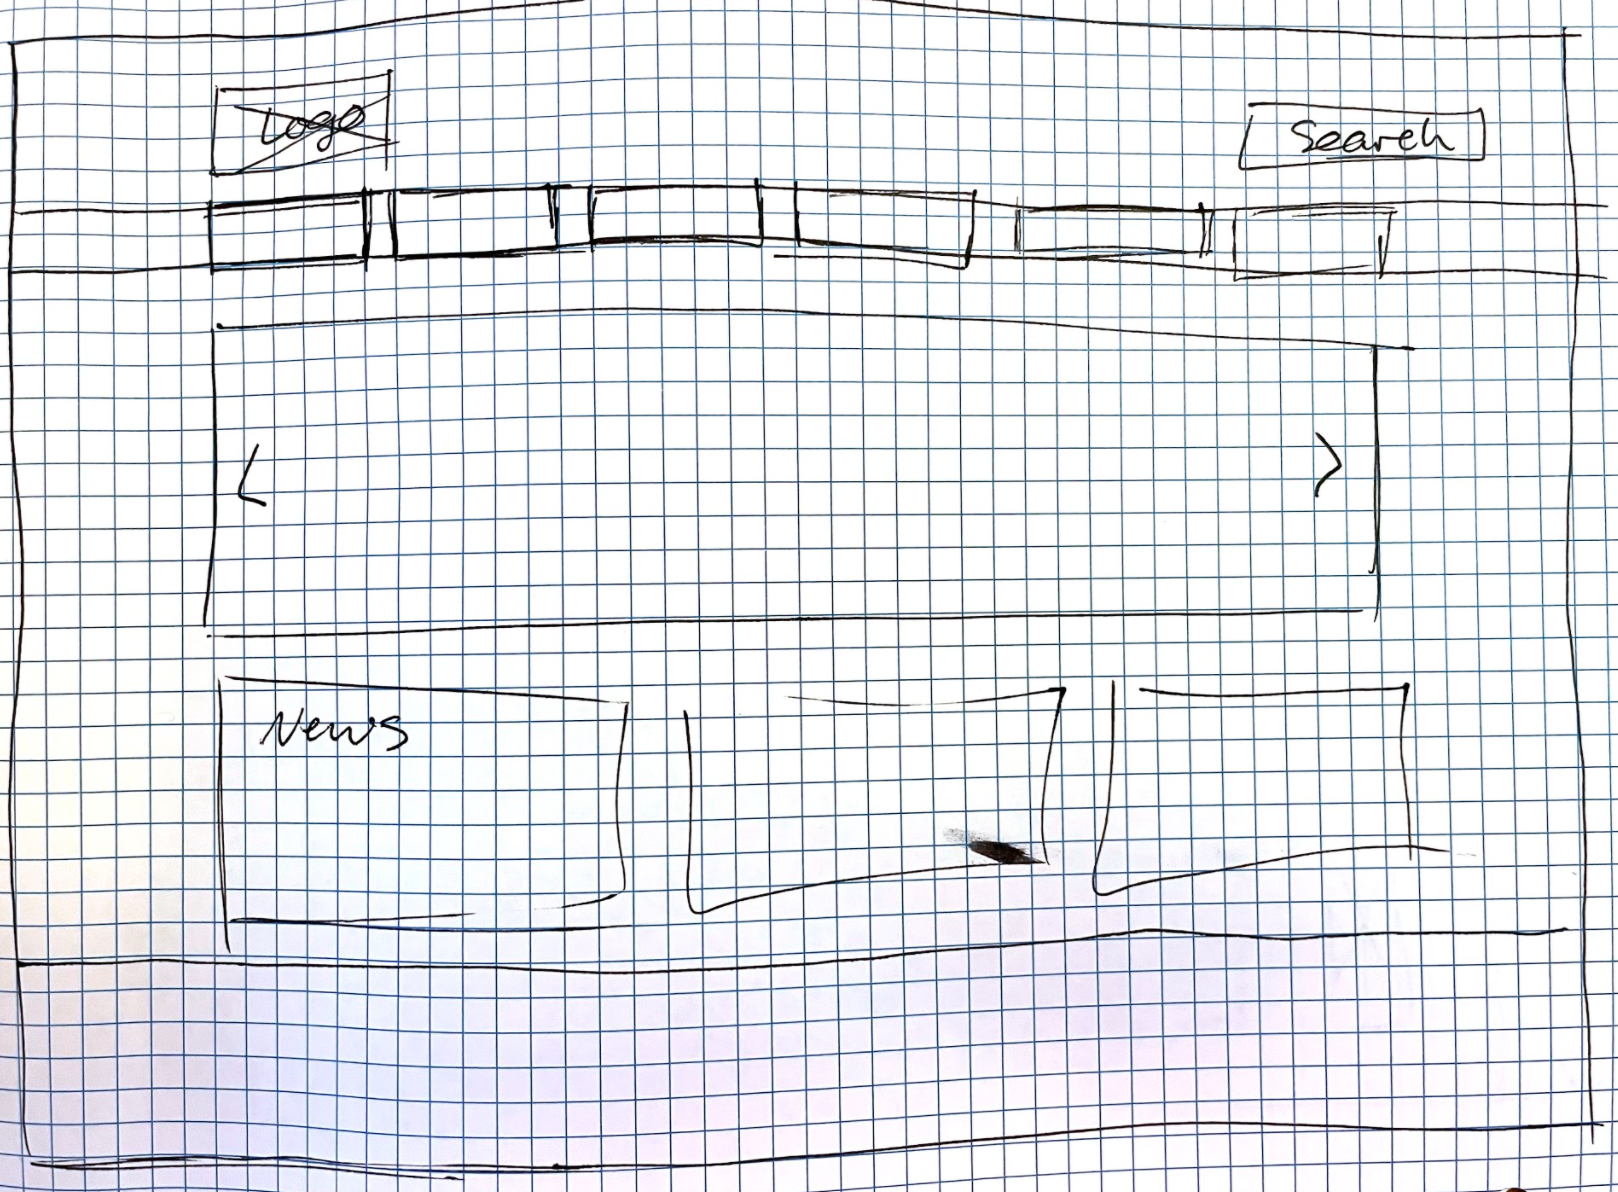 Logo
Search
<
>
News